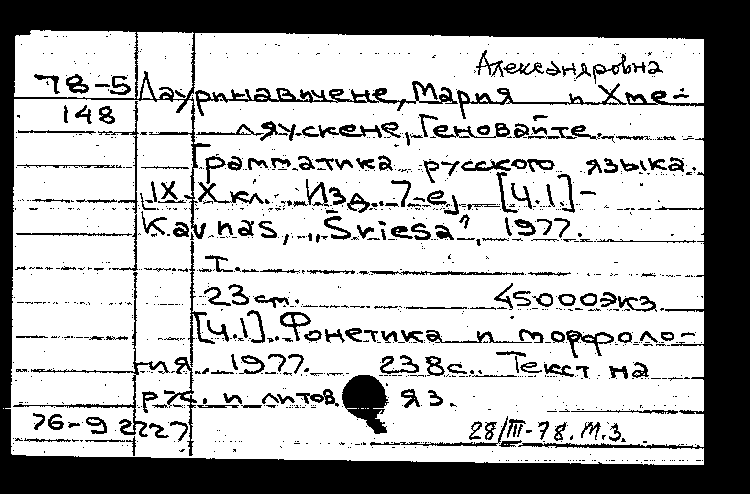 Александровна
78-5 Лауринавичене, Мария и Хме-
148 ляускене, Геновайте.
Грамматика русского языка.
IX-X кл. Изд. 7-е, [Ч.1]-
Kaunas, „Šviesa", 1977.
т.
23 см. 45000 экз
[Ч.1]. Фонетика и морфоло-
гия. 1977. 238 с. Текст на
рус. и литов. яз.
76-92227 28/III-78. М.З.